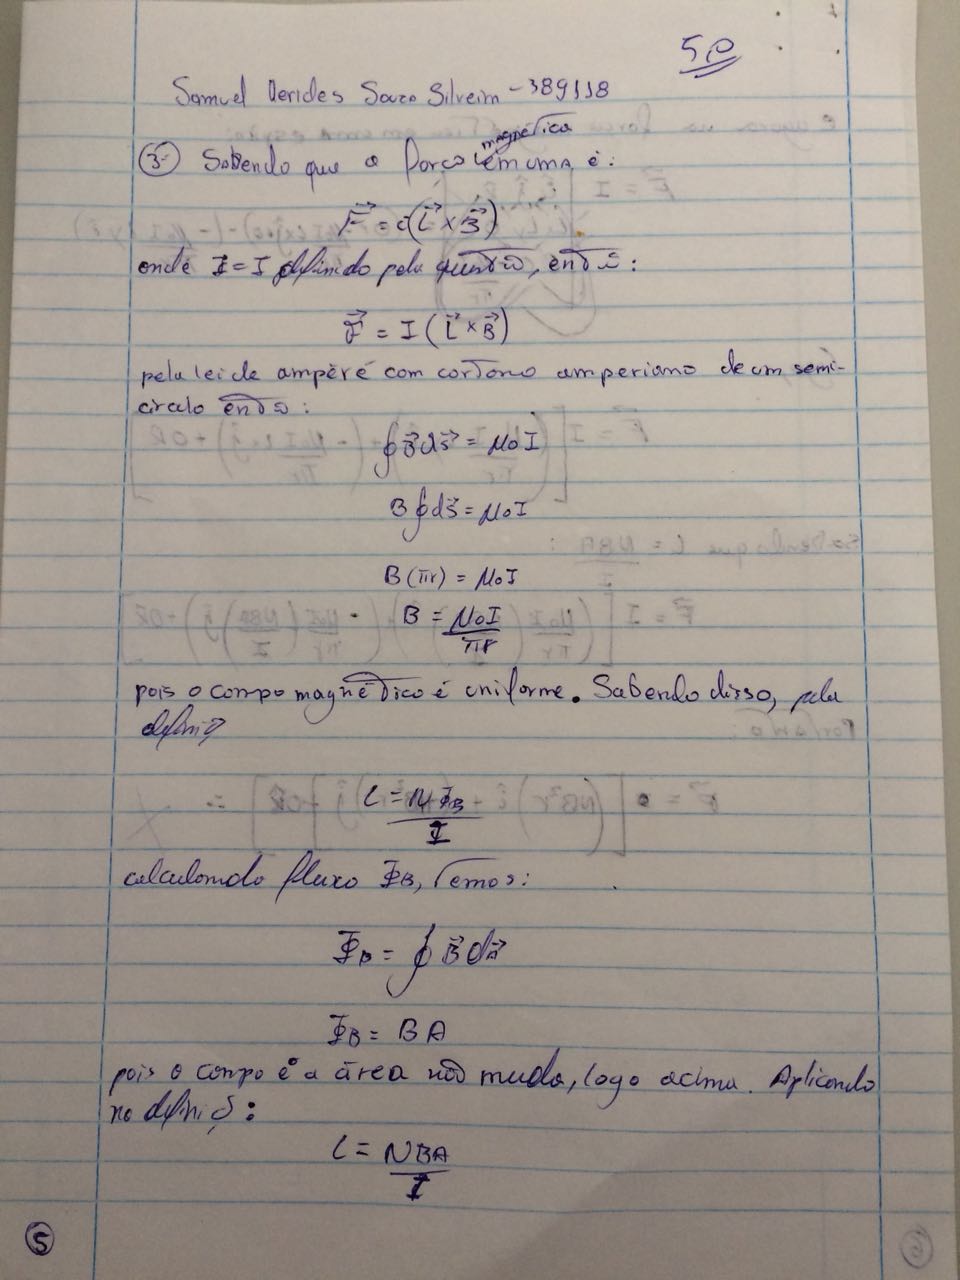 50
Samuel Derides Souza Silveira - 389118
magnética
3- Sabendo que a força em uma é:
F⃗ = i(L⃗ × B⃗)
onde I = I definido pela questão, então:
F⃗ = I (L⃗ × B⃗)
pela lei de ampère com contorno amperiano de um semi-
circulo então:
∮B⃗ds⃗ = μ₀I
B∮ds⃗ = μ₀I
B(πr) = μ₀I
B = μ₀I/πr
pois o campo magnético é uniforme. Sabendo disso, pela
L = NΦB/I
calculando fluxo ΦB, temos:
ΦB = ∮ B⃗ dA⃗
ΦB = BA
pois o campo é a área não muda, logo acima. Aplicando
L = NBA/I
5